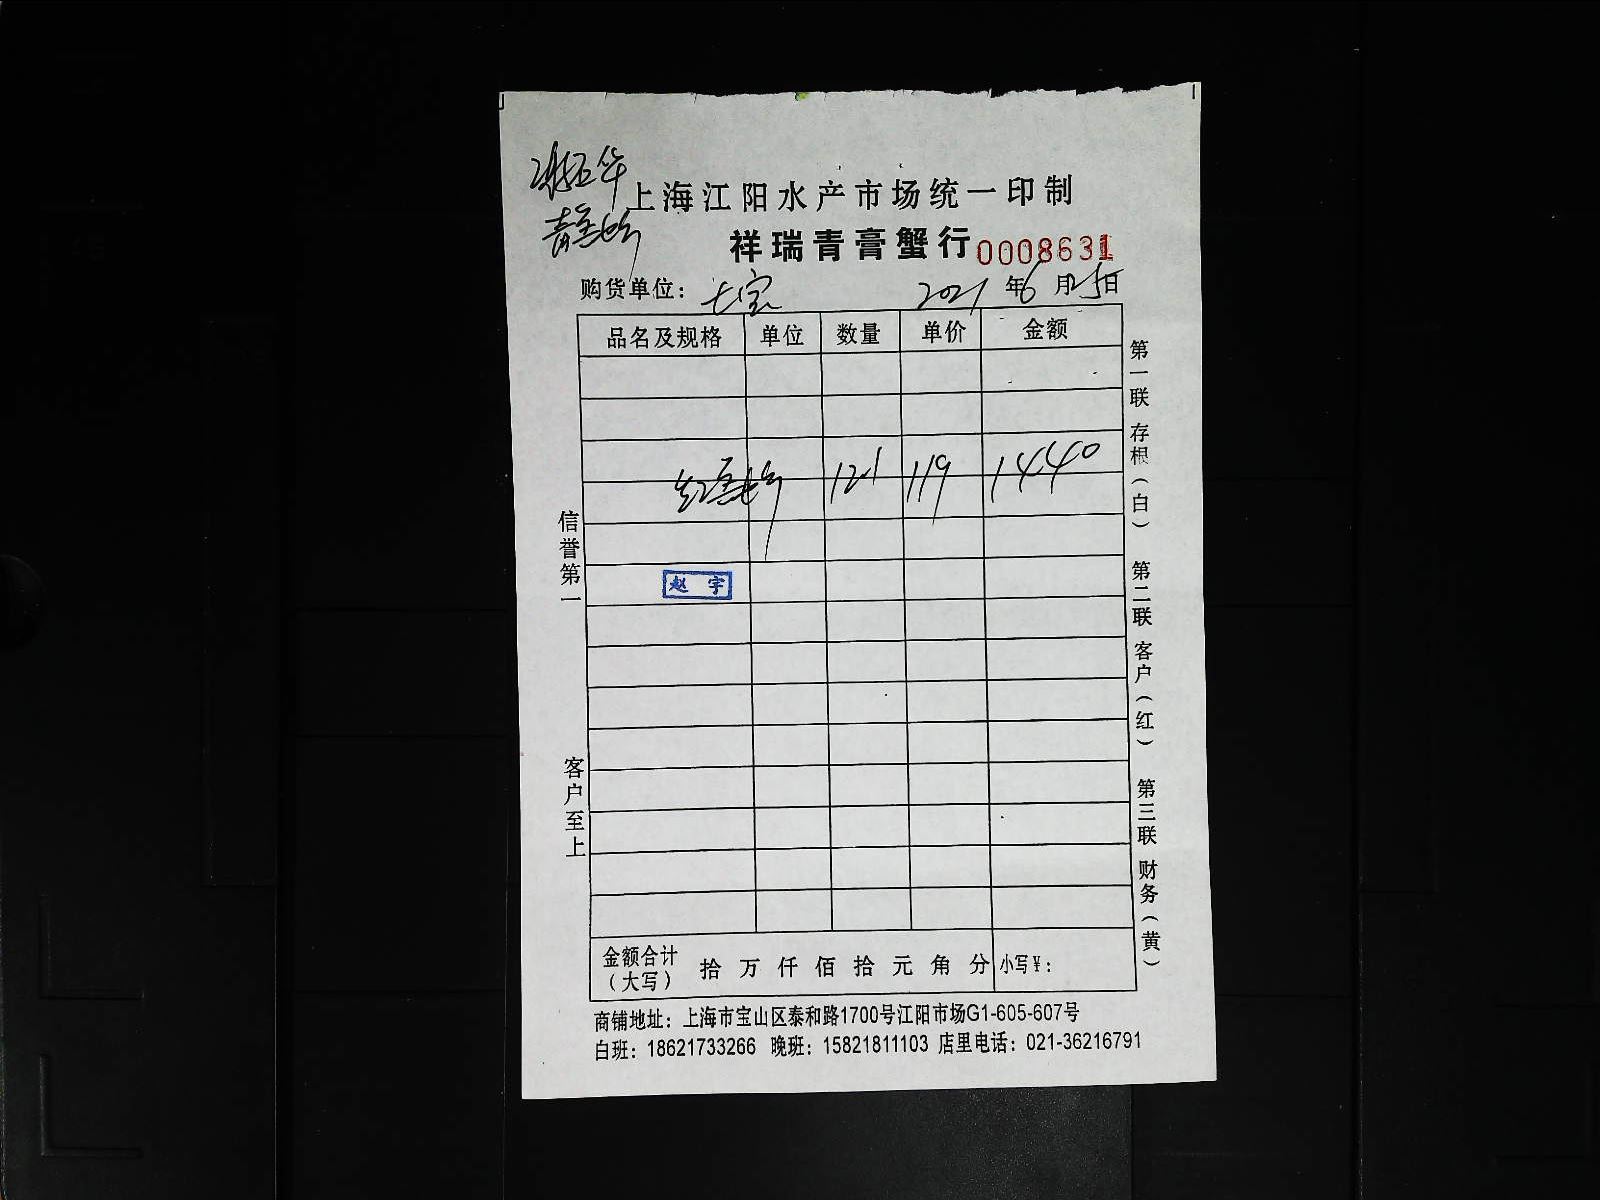 上海江阳水产市场统一印制
祥瑞青膏蟹行 0008631
购货单位： 七宝 2021年6月25日
品名及规格 单位 数量 单价 金额
12.1 119 1440
赵宇
金额合计（大写） 拾万仟佰拾元角分 小写￥：
信誉第一 客户至上
第一联 存根（白） 第二联 客户（红） 第三联 财务（黄）
商铺地址：上海市宝山区泰和路1700号江阳市场G1-605-607号
白班：18621733266 晚班：15821811103 店里电话：021-36216791